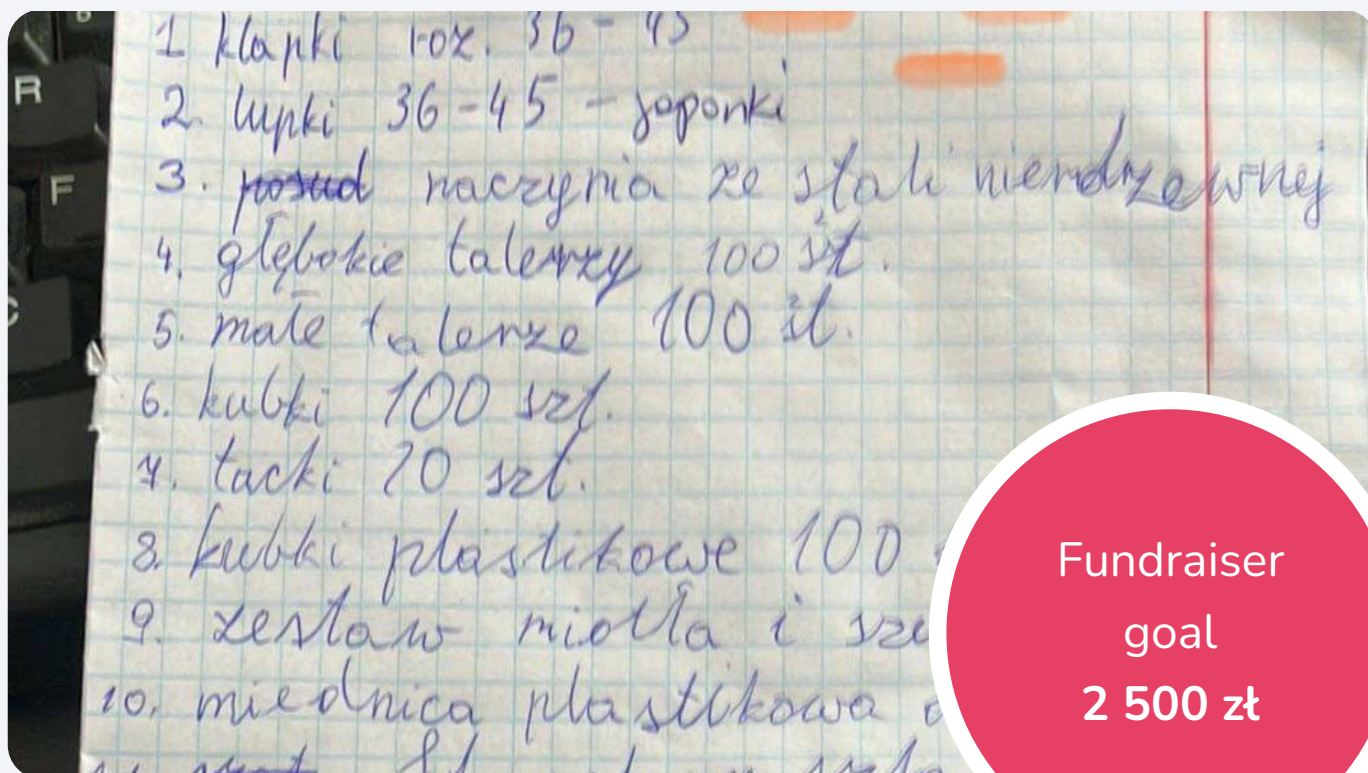 1 klapki roz. 36-45
2. lupki 36-45 - japonki
3. posud naczynia ze stali nierdzewnej
4. głębokie talerzy 100 št.
5. małe talerze 100 št.
6. kubki 100 szt.
7. tacki 20 szt.
8. kubki plastikowe 100
9. zestaw miotła i
10. miednica plastikowa
R
F
C
Fundraiser
goal
2 500 zł